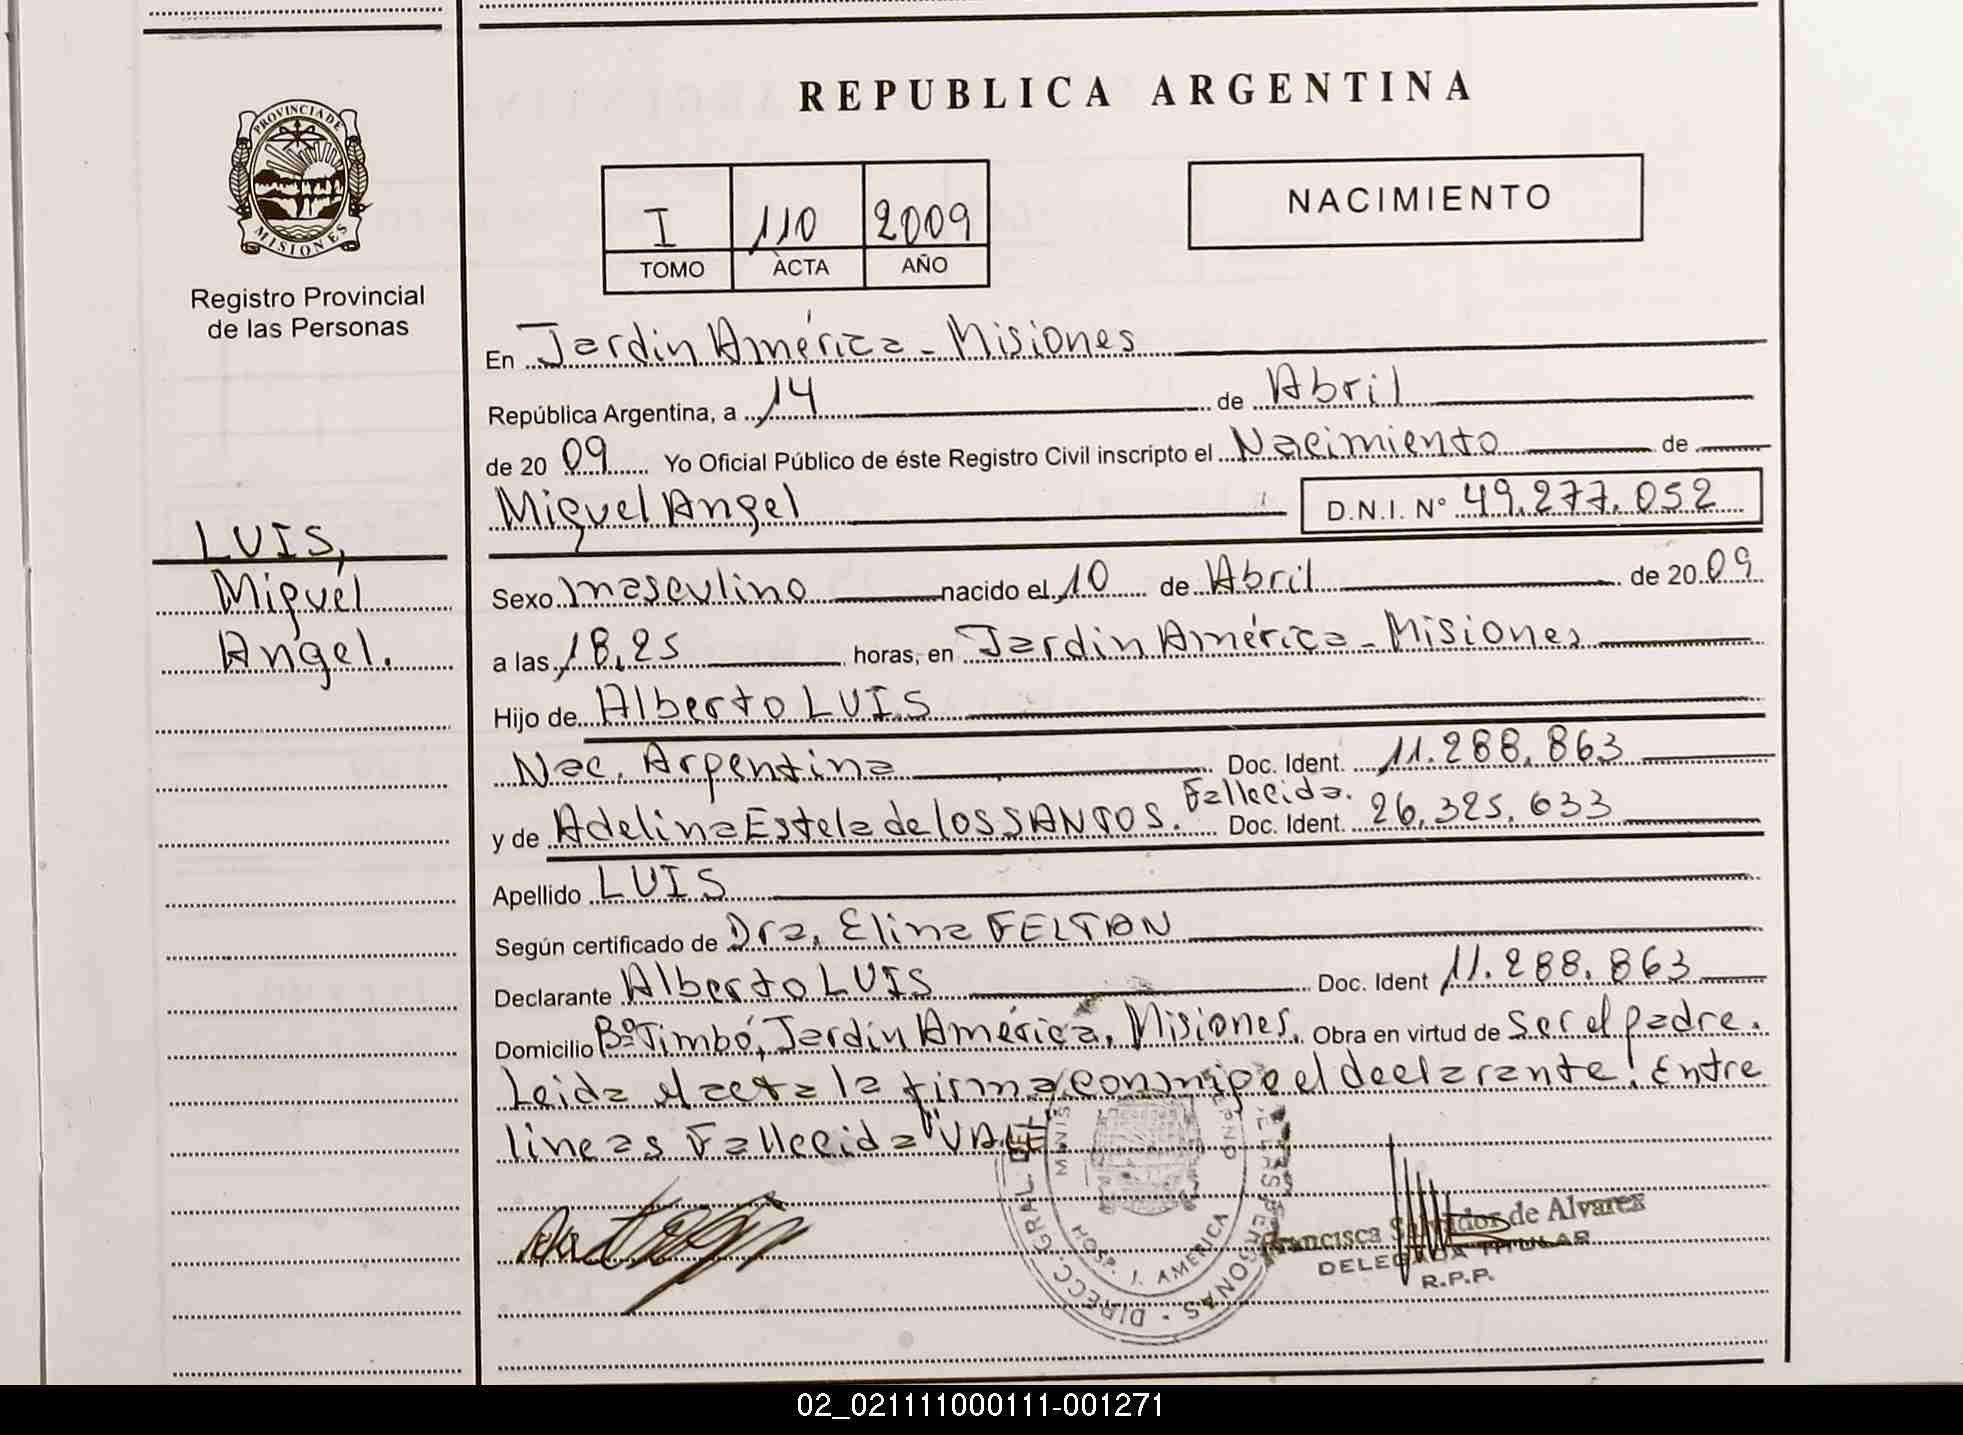 PROVINCIA DE
MISIONES
Registro Provincial
de las Personas
LUIS,
Miguel
Angel.
REPUBLICA ARGENTINA
I 110 2009
TOMO ACTA AÑO
NACIMIENTO
En Jardin América - Misiones
República Argentina, a 14 de Abril
de 20 09 Yo Oficial Público de éste Registro Civil inscripto el Nacimiento de
Miguel Angel D.N.I. Nº 49.277.052
Sexo masculino nacido el 10 de Abril de 20 09
a las 18,25 horas, en Jardin América - Misiones
Hijo de Alberto LUIS
Nac. Argentina Doc. Ident. 11.288.863
Fallecida.
y de Adelina Estela de los SANTOS. Doc. Ident. 26.325.633
Apellido LUIS
Según certificado de Dra. Elina FELTAN
Declarante Alberto LUIS Doc. Ident 11.288.863
Domicilio Bº Timbó, Jardín América, Misiones. Obra en virtud de Ser el padre.
Leida el acta la firma conmigo el declarante. Entre
lineas Fallecida "VALE
DIRECC. GRAL. DEL LAS PERSONAS
HOSP. J. AMERICA
Francisca Salvador de Alvarez
DELEGADA TITULAR
R.P.P.
02_021111000111-001271